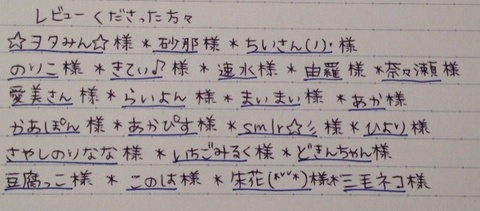 レビューくださった方々
☆ヲタみん☆様 * 砂那様 * ちいさん(ﾉ)･様
のりこ様 * きてぃ♪様 * 速水様 * 由羅様 * 奈々瀬様
愛美さん様 * らいよん様 * まいまい様 * あか様
かあぽん様 * あかぴす様 * smlr☆彡様 * ひより様
さやしのりなな様 * いちごみるく様 * どきんちゃん様
豆腐っこ様 * このは様 * 朱花(*˘˘*)様* 三毛ネコ様